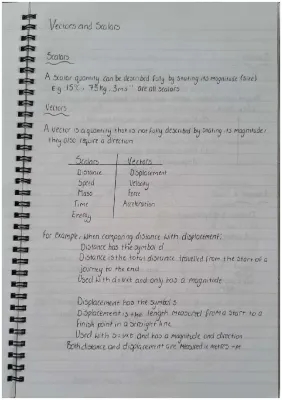 Vectors and Scalars
Scalars
A scalar quantity can be described fully by stating its magnitude (size)
E.g. 15°C, 75kg, 3ms⁻¹ are all scalars
Vectors
A vector is a quantity that is not fully described by stating its magnitude,
they also require a direction
Scalars Vectors
Distance Displacement
Speed Velocity
Mass Force
Time Acceleration
Energy
For example, when comparing distance with displacement:
Distance has the symbol d
Distance is the total distance travelled from the start of a
journey to the end
Used with d=vt and only has a magnitude
Displacement has the symbol s
Displacement is the length measured from a start to a
finish point in a straight line
Used with s=vt and has a magnitude and direction
Both distance and displacement are measured in metres -m